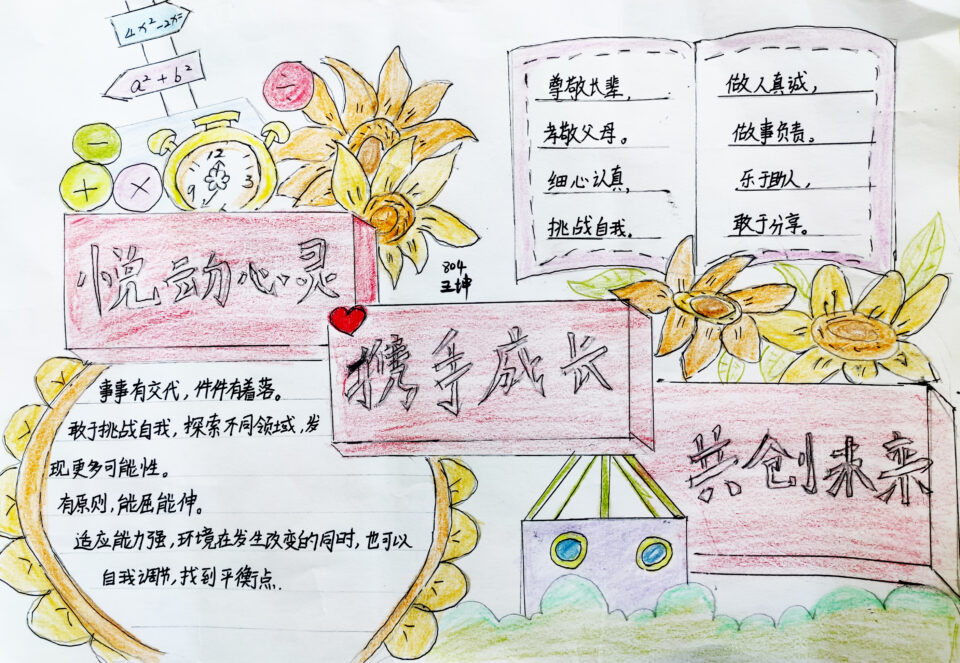 4x²-2x=
a²+b²
12
9 3
尊敬长辈,
孝敬父母。
细心认真,
挑战自我。
做人真诚,
做事负责。
乐于助人,
敢于分享。
悦动心灵
804
王坤
携手成长
共创未来
事事有交代,件件有着落。
敢于挑战自我,探索不同领域,发
现更多可能性。
有原则,能屈能伸。
适应能力强,环境在发生改变的同时,也可以
自我调节,找到平衡点.